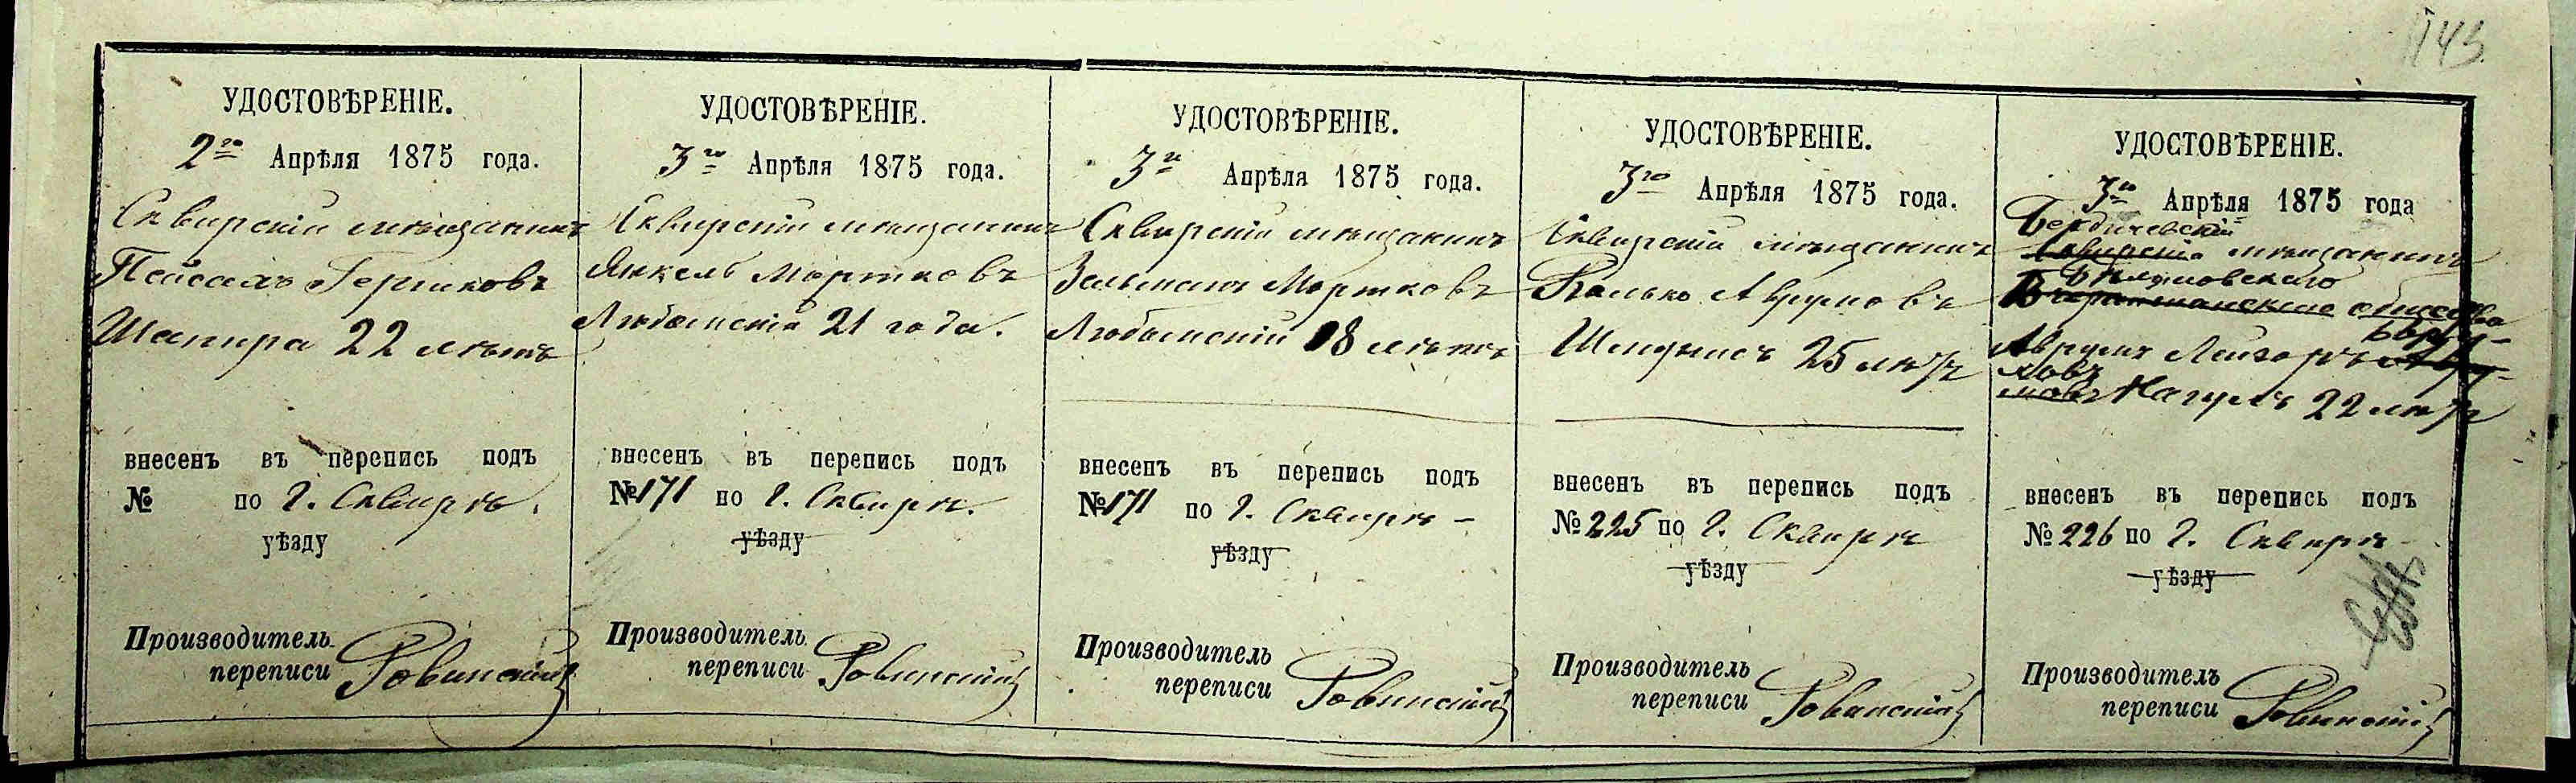 143
УДОСТОВѢРЕНІЕ.
2го Апрѣля 1875 года.
Сквирскій мѣщанинъ
Пейсахъ Гершковъ
Шапира 22 лѣтъ
внесенъ въ перепись подъ
№ по г. Сквирѣ.
уѣзду
Производитель
переписи Ровинскій
УДОСТОВѢРЕНІЕ.
3го Апрѣля 1875 года.
Сквирскій мѣщанинъ
Янкель Мортковъ
Любомскій 21 года.
внесенъ въ перепись подъ
№ 171 по г. Сквирѣ.
уѣзду
Производитель
переписи Ровинскій
УДОСТОВѢРЕНІЕ.
3го Апрѣля 1875 года.
Сквирскій мѣщанинъ
Зельманъ Мортковъ
Любомскій 18 лѣтъ
внесенъ въ перепись подъ
№ 171 по г. Сквирѣ
уѣзду
Производитель
переписи Ровинскій
УДОСТОВѢРЕНІЕ.
3го Апрѣля 1875 года.
Сквирскій мѣщанинъ
Аврумовъ
25 лѣтъ
внесенъ въ перепись подъ
№ 225 по г. Сквирѣ
уѣзду
Производитель
переписи Ровинскій
УДОСТОВѢРЕНІЕ.
3го Апрѣля 1875 года
Бердичевскій
Сквирскій мѣщанинъ
общества
Аврумъ Лейзоръ
мовъ 22 лѣтъ
внесенъ въ перепись подъ
№ 226 по г. Сквирѣ
уѣзду
Производитель
переписи Ровинскій